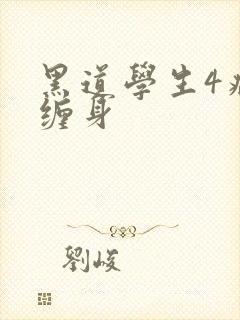 黑道學生4
缠身
劉峻